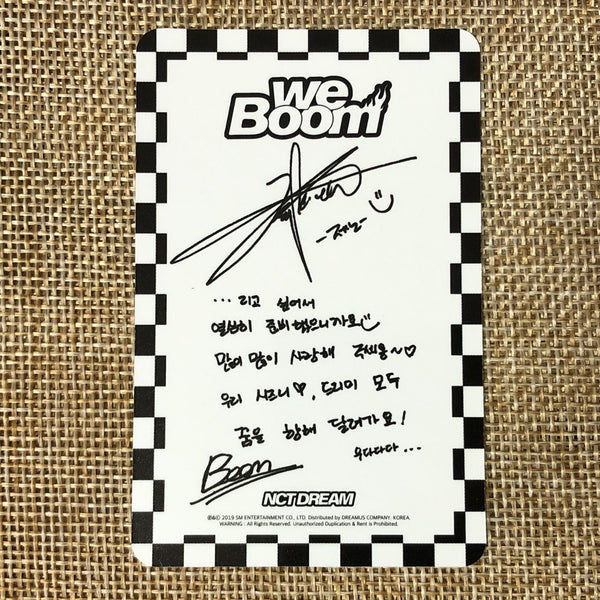 we
Boom
-제노-
... 리고 싶어서
열심히 준비했으니까요
많이 많이 사랑해 주세용~♡
우리 시즈니♡, 드리미 모두
꿈을 향해 달려가요!
우다다다...
Boom
NCT DREAM
℗&© 2019 SM ENTERTAINMENT CO., LTD. Distributed by DREAMUS COMPANY. KOREA.
WARNING : All Rights Reserved. Unauthorized Duplication & Rent is Prohibited.